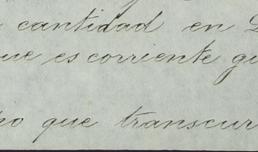 cantidad en
que es corriente
que transcur